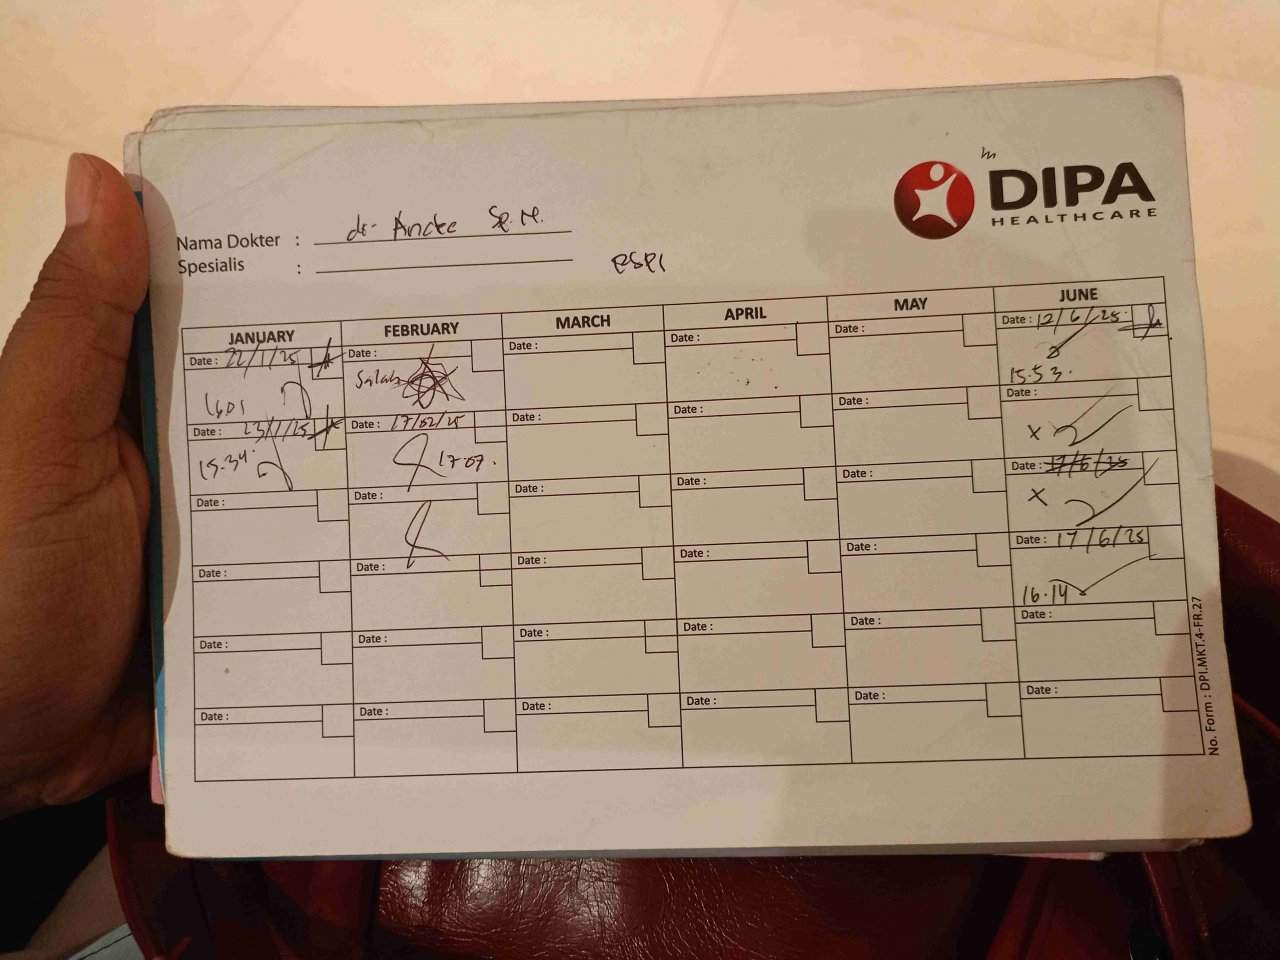 DIPA
HEALTHCARE
Nama Dokter : dr. Andre Sp.M.
Spesialis :
JANUARY FEBRUARY MARCH APRIL MAY JUNE
Date : 22/1/25 Date : Date : Date : Date : Date : 12/6/25
Salah 15.53.
Date : 23/1/25 Date : 17/02/25 Date : Date : Date : Date :
15.34. 17.07. x
Date : Date : Date : Date : Date : Date : 17/6/25
x
Date : Date : Date : Date : Date : Date : 17/6/25
16.14
Date : Date : Date : Date : Date : Date :
Date : Date : Date : Date : Date : Date :
No. Form : DPI.MKT.4-FR.27